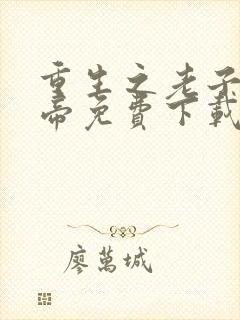 重生之老子
帝免費下載
廖萬城